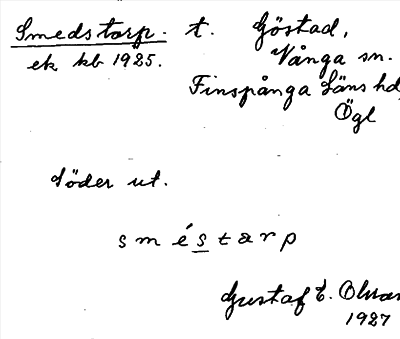 Smedstorp. t. Göstad,
ek kb 1925. Vånga sn.
Finspånga Läns hd
Ögl
Söder ut.
s m é s t a r p
Gustaf E.
1927